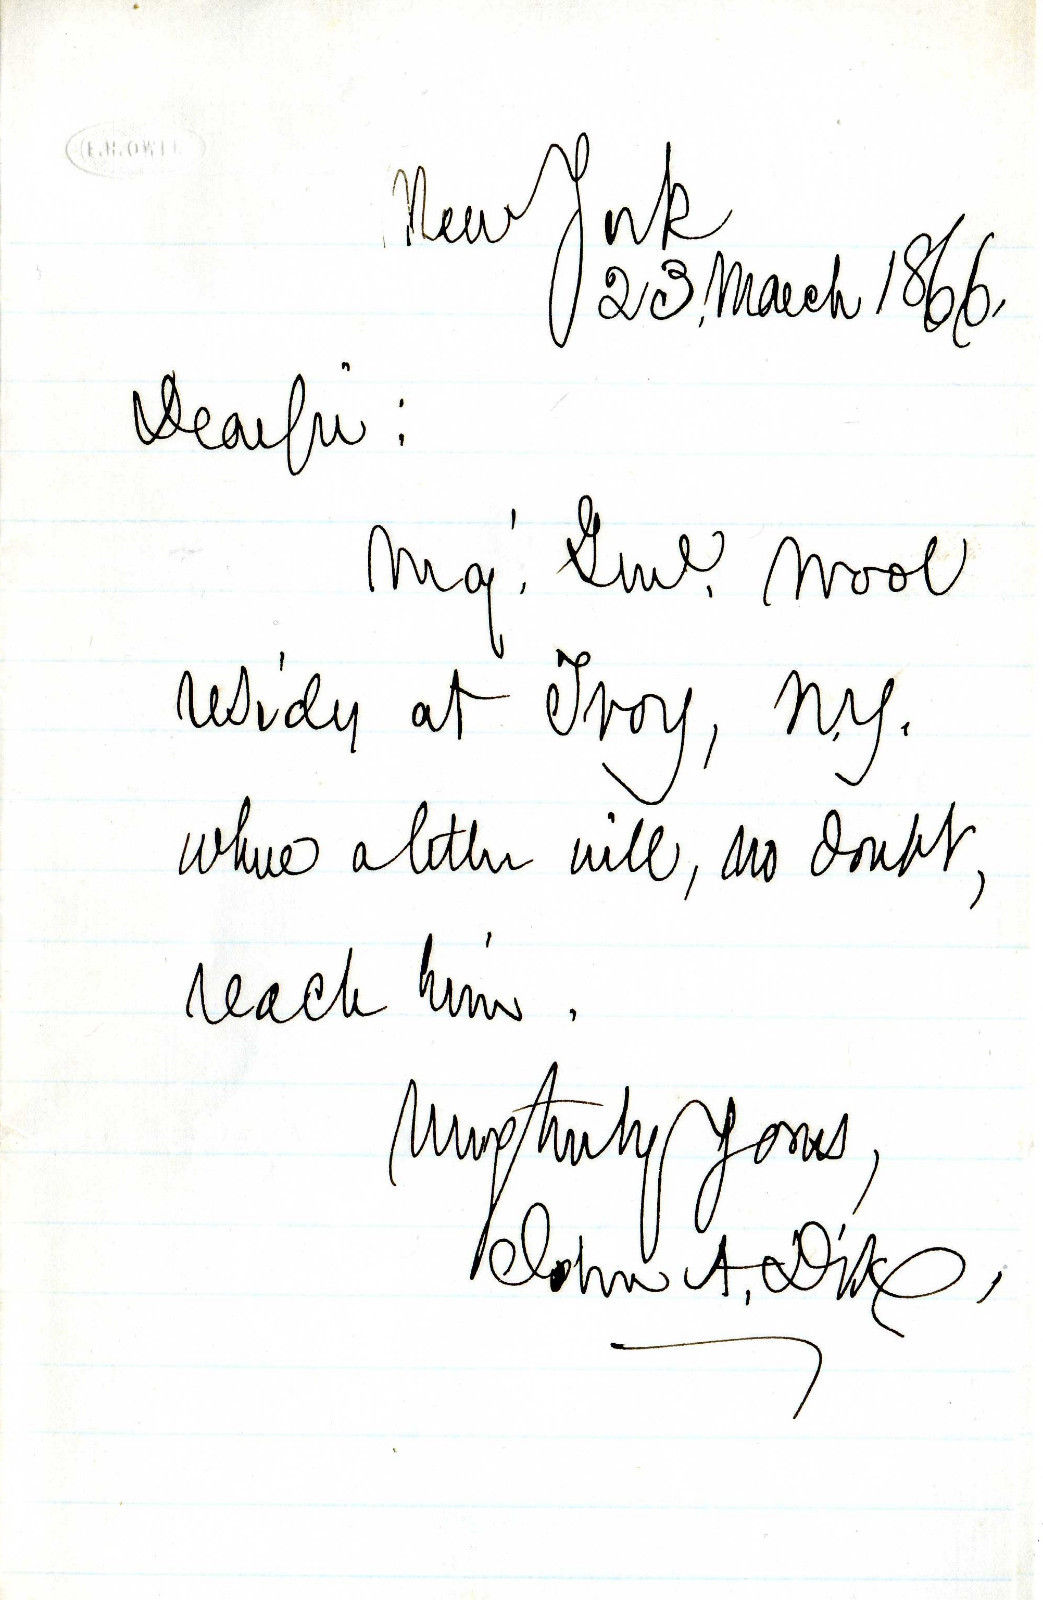 E.H. OWEN
New York
23, March 1866.
Dear Sir:
Maj. Genl. Wool
resides at Troy, N.Y.
where a letter will, no doubt,
reach him.
truly yours,
John A. Dix,